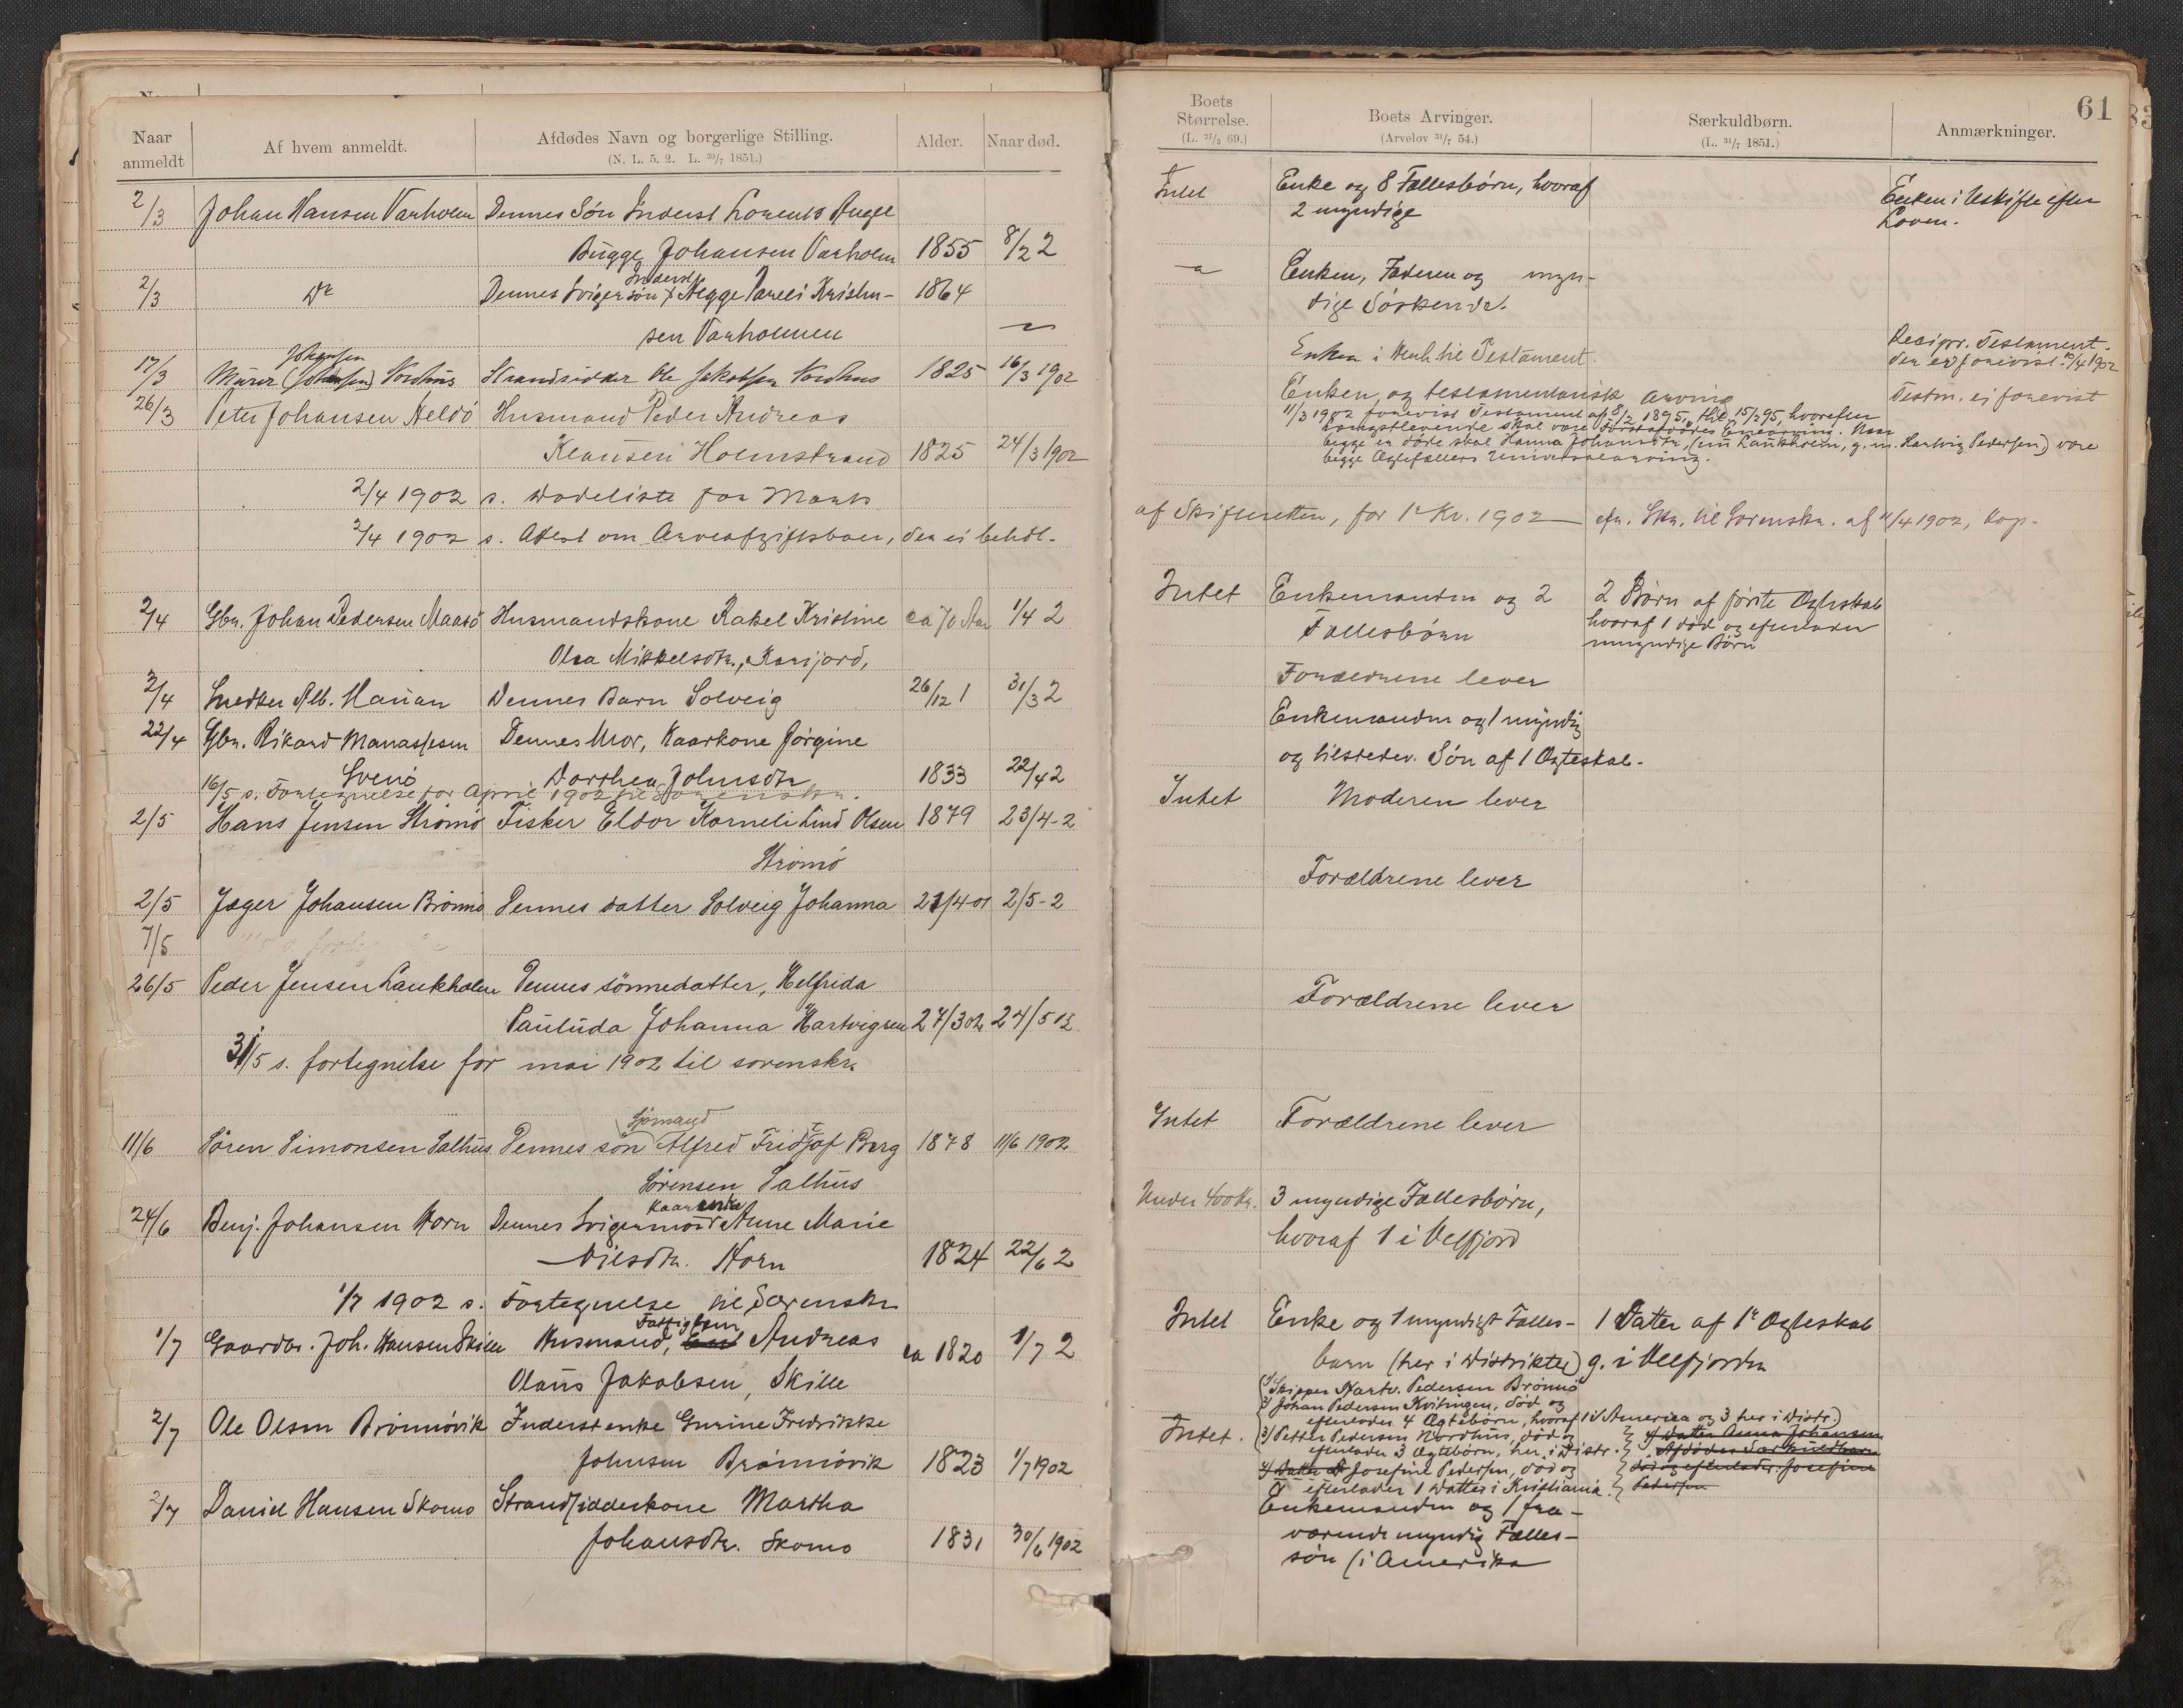 Naar anmeldt
Af hvem anmeldt.
Afdødes Navn og borgerlige Stilling.
(N. L. 5. 2. L. 30/7 1851.)
Alder.
Naar død.
2/3 Johan Hansen Varholm Dennes Søn Inderst Lorents
Bugge Johansen Varholm 1855 8/2 2
2/3 Do Dennes Svigersøn Inderst Kristen- 1864
sen Varholmen
Johansen
17/3 Murer (Johansen) Nordhus Strandsidder Ole Jakobsen Nordhus 1825 16/3 1902
26/3 Peter Johansen Heldö Husmand Peder Andreas
Klausen Holmstrand 1825 24/3 1902
2/4 1902 s. Dødeliste for Marts
2/4 1902 s. Attest om Arveafgiftsboer, der ei behdl.
2/4 Gbr. Johan Pedersen Maasö Husmandskone Rakel Kristine ca 70 Aar 1/4 2
Olea Mikkelsdtr.,
2/4 Snedker Alb. Dennes Barn Solveig 26/12 1 31/3 2
22/4 Gbr. Rikard Manassesen Dennes Mor, Kaarkone Jørgine
Svenö Dorthea Johnsdtr. 1833 22/4 2
16/5 s. Fortegnelse for April 1902 til Sorenskr.
2/5 Hans Jensen Strömö Fisker Eldor Korneli Lind Olsen 1879 23/4-2
Strömö
2/5 Jæger Johansen Brönnö Dennes datter Solveig Johanna 23/4 01 2/5-2
7/5
26/5 Peder Jensen Laukholm Dennes sönnedatter, Helfrida
Pauluda Johanna Hartvigsen 27/3 02 24/5 02
31/5 s. fortegnelse for mai 1902 til sorenskr.
Sjömand
11/6 Sören Simonsen Salhus Dennes sön Alfred Fridtjof Berg 1878 11/6 1902
Sörensen Salhus
Kaarenke
24/6 Benj. Johansen Horn Dennes Svigermor Anne Marie
Nilsdtr. Horn 1824 22/6 2
1/7 1902 s. Fortegnelse til Sorenskr.
Fattiglem
1/7 Gaardbr. Joh. Hansen Skille Husmand, Andreas ca 1820 1/7 2
Olaus Jakobsen, Skille
2/7 Ole Olsen Brönnövik Inderstenke Gurine Fredrikke
Johnsen Brönnövik 1823 1/7 1902
2/7 Daniel Hansen Skomo Strandsidderkone Martha
Johansdtr. Skomo 1831 30/6 1902
61
Boets Størrelse.
(L. 27/3 69.)
Boets Arvinger.
(Arvelov 31/7 54.)
Særkuldbørn.
(L. 31/7 1851.)
Anmærkninger.
Intet Enke og 8 Fællesbørn, hvoraf Enken i Uskifte efter
2 myndige Loven.
Enken, Faderen og myn-
dige Söskende.
Enken i Henh. til Testament. Recipr. Testament.
der er forevist 10/4 1902
Enken, og testamentarisk arving Testm. ei forevist
11/3 1902 forevist Testament af 8/2 1895, 15/2 95, hvorefter
længstlevende skal være førstafdødes Enearving. Naar
begge er døde skal Hanna Johansdtr. (em Laukholm, g. m. Hartvig Pedersen) være
begge Ægtefællers Universalarving.
af Skifteretten, for 1' Kv. 1902 cfr. Skr. til Sorenskr. af 11/4 1902, Kop.
Intet Enkemanden og 2 2 Børn af første Ægteskab
Fællesbørn hvoraf 1 død og efterlader
umyndige Børn
Forældrene lever
Enkemanden og 1 myndig
og tilstedev. Søn af 1 Ægteskab.
Intet Moderen lever
Forældrene lever
Forældrene lever
Intet Forældrene lever
Under 400 Kr. 3 myndige Fællesbørn,
hvoraf 1 i Velfjord
Intet Enke og 1 myndigt Fælles- 1 Datter af 1' Ægteskab
barn (her i Distriktet) g. i Velfjorden
1) Skipper Hartv. Pedersen Brönnö
2) Johan Pedersen Kvitingen, død og
efterlader 4 Ægtebørn, hvoraf 1 i America og 3 her i Distr.)
Intet. 3) Petter Pedersen Nordhus, død og 4) Datter Anna Johansen
efterlader 3 Ægtebørn, her i Distr. Afdødes Særkuldbarn
4) Datter Josefine Pedersen, død og død og efterlader Josefine
efterlader 1 Datter i Kristiania. Pedersen
Enkemanden og 1 fra-
værende myndig Fælles-
søn (i Amerika